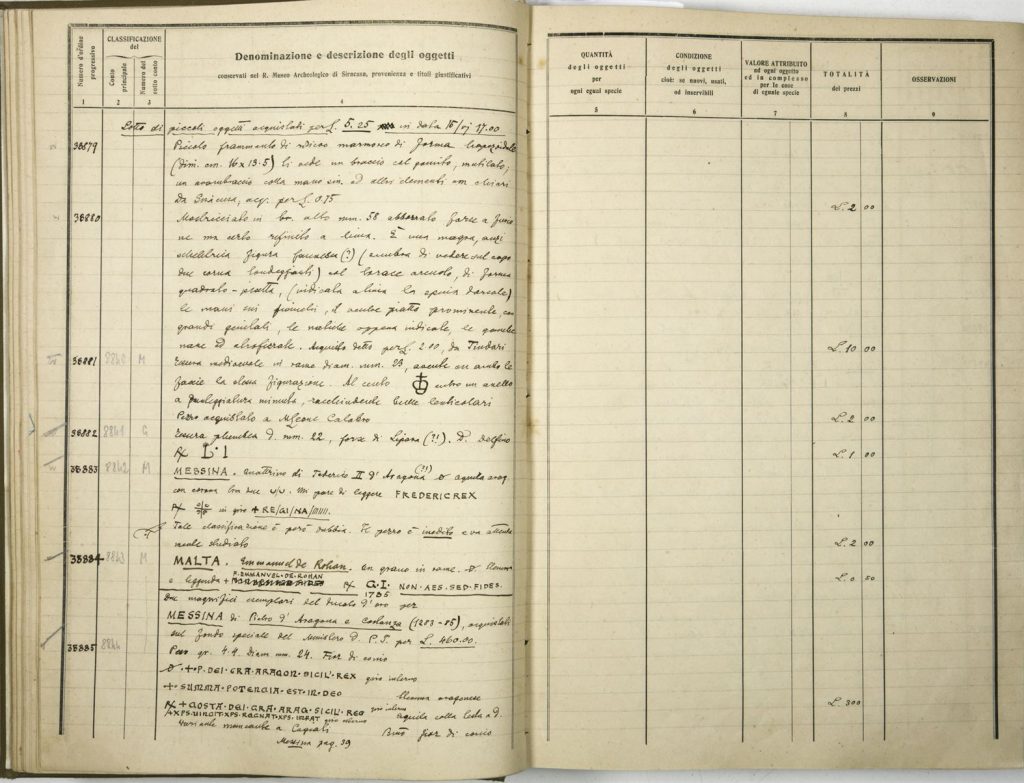 Numero d'ordine progressivo
CLASSIFICAZIONE del
Conto principale
Numero del sotto conto
Denominazione e descrizione degli oggetti
conservati nel R. Museo Archeologico di Siracusa, provenienza e titoli giustificativi
1 2 3 4
Lotto di piccoli oggetti acquistati per L. 5.25 in data
38879 Piccolo frammento di marmoreo di forma trapezoidale
(dim. cm. 16 x 13.5) Si vede un braccio col gomito, mutilato;
un avambraccio colla mano sin. ed altri elementi non chiari
Da Siracusa, acq. per L. 0.75
38880 in br. alto mm. 58 abborrato forse a
ne ma certo rifinito a lima. È una magra, anzi
scheletrica figura (?) (sembra di vedere sul capo
due corna ) col torace arcuato, di forma
quadrato-piatta, (indicata a lima la spina dorsale)
le mani sui ginocchi, il ventre piatto prominente, con
grandi genitali, le natiche appena indicate, le gambe
nane ed atrofizzate. Acquisto detto per L. 2.00, da Tindari
38881 8840 M Tessera medioevale in rame diam. mm. 23, avente in ambo le
faccie la stessa figurazione. Al centro entro un anello
a minuta, racchiudente lenticolari
Pezzo acquistato a Calabro
38882 8841 G Tessera plumbea D. mm. 22, forse di Lipara (?!). D. Delfino
℞ L·I
38883 8842 M MESSINA. Quattrino di Federico II d'Aragona (?!) aquila arag.
con corona Mi pare di leggere FREDERIC REX
℞ in giro + RE/GI/NA/
Tale classificazione è però dubbia. Il pezzo è inedito e va
mente studiato
38884 8843 M MALTA. Emmanuel de Rohan. Un grano in rame. D. Stemma
e leggenda + F. EMMANVEL·DE·ROHAN ℞ G.I. NON·AES·SED·FIDES.
1785
Due magnifici esemplari del ducato d'oro per
MESSINA di Pietro d'Aragona e Costanza (1283-85), acquistati
sul fondo speciale del Ministero D. P. I. per L. 460.00.
38885 8844 Peso gr. 4.4. Diam mm. 24. Fior di conio
+·P·DEI·GRA·ARAGON·SICIL·REX giro interno
+·SUMMA·POTENCIA·EST·IN·DEO Stemma aragonese
℞ + COSTA·DEI·GRA·ARAG·SICIL·REG giro interno
+XPS·VINCIT·XPS·REGNAT·XPS·IMPAT giro interno aquila colla testa a d.
variante mancante a Cagiati fior di conio
Messina pag. 39
QUANTITÀ
degli oggetti
per
ogni egual specie
5
CONDIZIONE
degli oggetti
cioè: se nuovi, usati,
od inservibili
6
VALORE ATTRIBUITO
ad ogni oggetto
ed in complesso
per le cose
di eguale specie
7
TOTALITÀ
dei prezzi
8
OSSERVAZIONI
9
L. 2 00
L. 10 00
L. 2 00
L. 1 00
L. 2 00
L. 0 50
L. 300